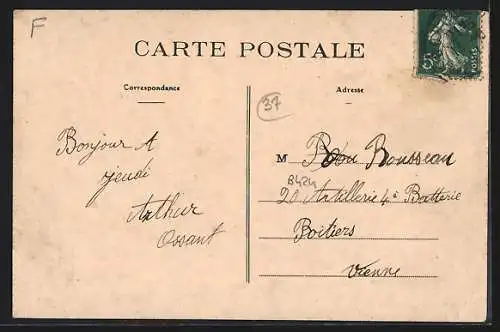 F
CARTE POSTALE
5c
POSTES
Correspondance
Adresse
37
Bonjour A
jeudi
Arthur
Ossant
M Rousseau
B424
20 Artillerie 4e Batterie
Poitiers
Vienne